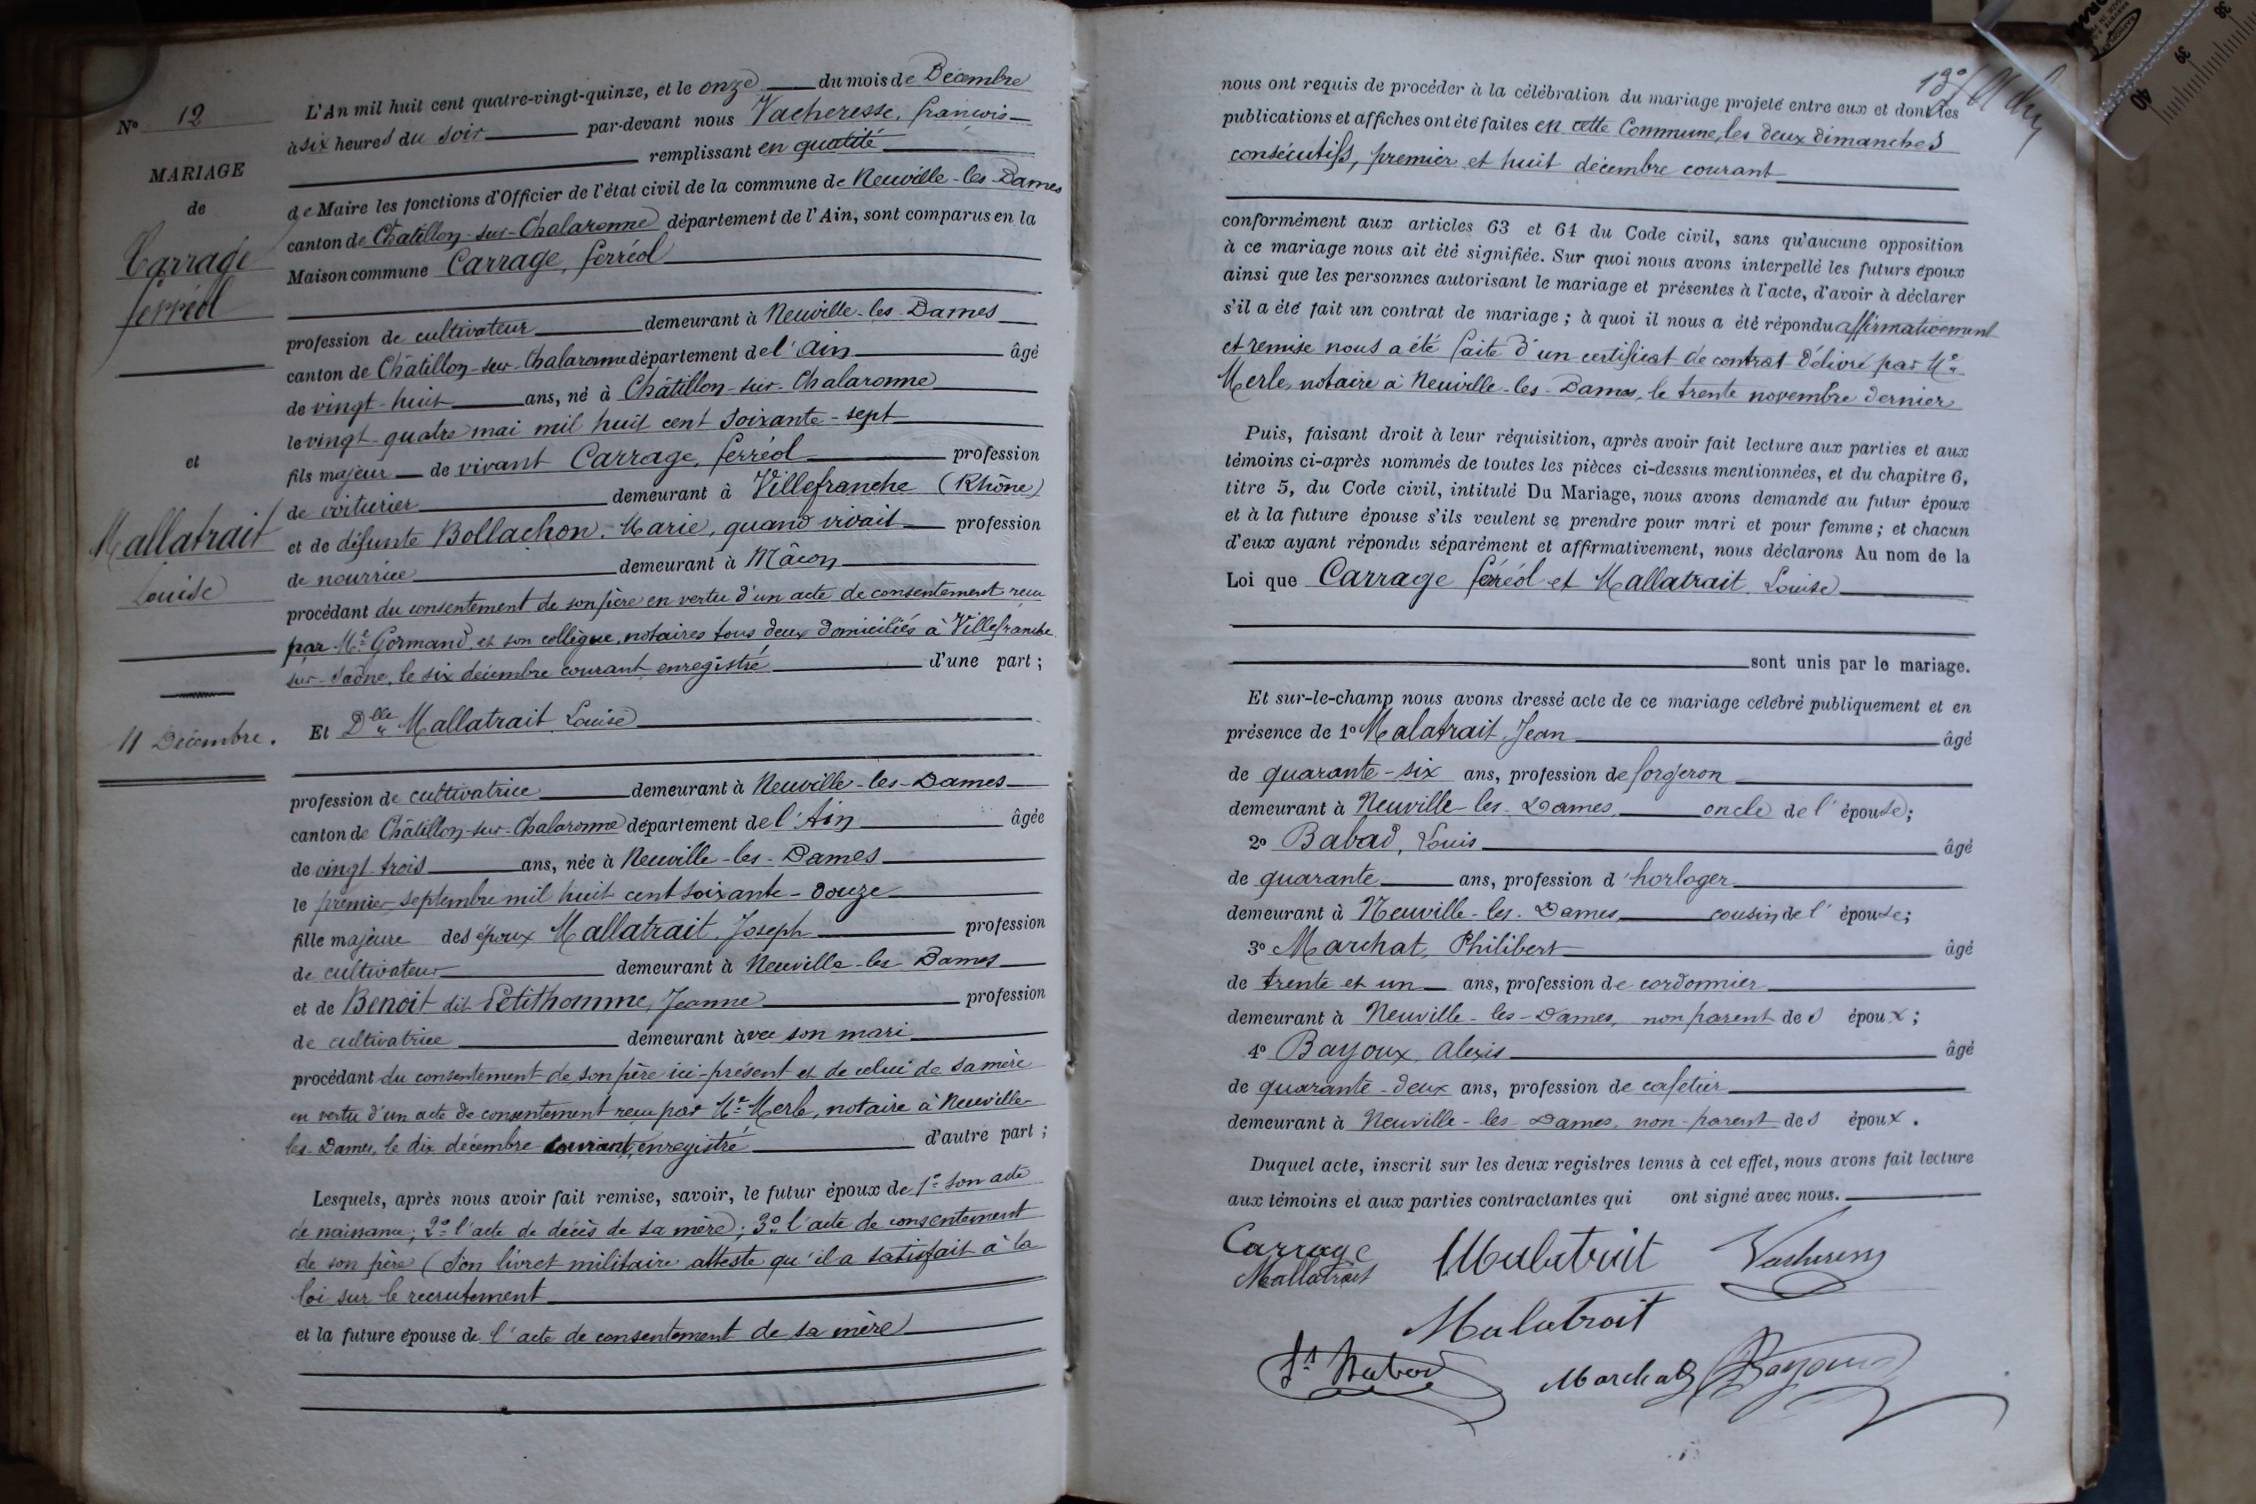 Nº 12
MARIAGE
de
Carrage
ferréol
et
Mallatrait
Louise
11 Décembre.
L'An mil huit cent quatre-vingt-quinze, et le onze du mois de Décembre
à six heures du soir par-devant nous Vacheresse, françois
remplissant en qualité
de Maire les fonctions d'Officier de l'état civil de la commune de Neuville-les-Dames
canton de Châtillon-sur-Chalaronne département de l'Ain, sont comparus en la
Maison commune Carrage, ferréol
profession de cultivateur demeurant à Neuville-les-Dames
canton de Châtillon-sur-Chalaronne département de l'Ain âgé
de vingt-huit ans, né à Châtillon-sur-Chalaronne
le vingt-quatre mai mil huit cent soixante-sept
fils majeur de vivant Carrage, ferréol profession
de voiturier demeurant à Villefranche (Rhône)
et de défunte Bollachon, Marie, quand vivait profession
de nourrice demeurant à Mâcon
procédant du consentement de son père en vertu d'un acte de consentement reçu
par Me Gormand et son collègue, notaires tous deux domiciliés à Villefranche
sur-Saône, le six décembre courant enregistré d'une part ;
Et Dlle Mallatrait Louise
profession de cultivatrice demeurant à Neuville-les-Dames
canton de Châtillon-sur-Chalaronne département de l'Ain âgée
de vingt-trois ans, née à Neuville-les-Dames
le premier septembre mil huit cent soixante-douze
fille majeure des époux Mallatrait, Joseph profession
de cultivateur demeurant à Neuville-les Dames
et de Benoît dit Petithomme, Jeanne profession
de cultivatrice demeurant avec son mari
procédant du consentement de son père ici-présent et de celui de sa mère
en vertu d'un acte de consentement reçu par Me Merle, notaire à Neuville-
les-Dames, le dix décembre courant, enregistré d'autre part ;
Lesquels, après nous avoir fait remise, savoir, le futur époux de 1º son acte
de naissance ; 2º l'acte de décès de sa mère ; 3º l'acte de consentement
de son père (Son livret militaire atteste qu'il a satisfait à la
loi sur le recrutement
et la future épouse de l'acte de consentement de sa mère)
13º
nous ont requis de procéder à la célébration du mariage projeté entre eux et dont les
publications et affiches ont été faites en cette Commune, les deux dimanches
consécutifs, premier et huit décembre courant
conformément aux articles 63 et 64 du Code civil, sans qu'aucune opposition
à ce mariage nous ait été signifiée. Sur quoi nous avons interpellé les futurs époux
ainsi que les personnes autorisant le mariage et présentes à l'acte, d'avoir à déclarer
s'il a été fait un contrat de mariage ; à quoi il nous a été répondu affirmativement
et remise nous a été faite d'un certificat de contrat délivré par Me
Merle, notaire à Neuville-les-Dames, le trente novembre dernier
Puis, faisant droit à leur réquisition, après avoir fait lecture aux parties et aux
témoins ci-après nommés de toutes les pièces ci-dessus mentionnées, et du chapitre 6,
titre 5, du Code civil, intitulé Du Mariage, nous avons demandé au futur époux
et à la future épouse s'ils veulent se prendre pour mari et pour femme ; et chacun
d'eux ayant répondu séparément et affirmativement, nous déclarons Au nom de la
Loi que Carrage ferréol et Mallatrait Louise
sont unis par le mariage.
Et sur-le-champ nous avons dressé acte de ce mariage célébré publiquement et en
présence de 1º Malatrait, Jean âgé
de quarante-six ans, profession de forgeron
demeurant à Neuville-les-Dames, oncle de l'épouse ;
2º Babad, Louis âgé
de quarante ans, profession d'horloger
demeurant à Neuville-les-Dames cousin de l'épouse ;
3º Marchat, Philibert âgé
de trente et un ans, profession de cordonnier
demeurant à Neuville-les-Dames, non parent des époux ;
4º Bayoux, Alexis âgé
de quarante-deux ans, profession de cafetier
demeurant à Neuville-les-Dames, non-parent des époux.
Duquel acte, inscrit sur les deux registres tenus à cet effet, nous avons fait lecture
aux témoins et aux parties contractantes qui ont signé avec nous.
Carrage Malatrait Vacheresse
Mallatrait
Malatrait
Ls Babad Marchat Bayoux
39
40